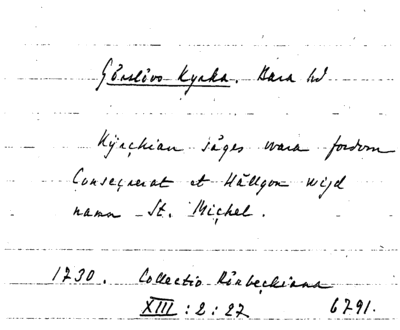 Görslövs Kyrka. Bara hd
Kÿrchian säges wara fordom
Consecrerat et Hällgon wijd
namn St. Michel.
1730. Collectio Rönbeckiana
XIII : 2 : 27 6791.